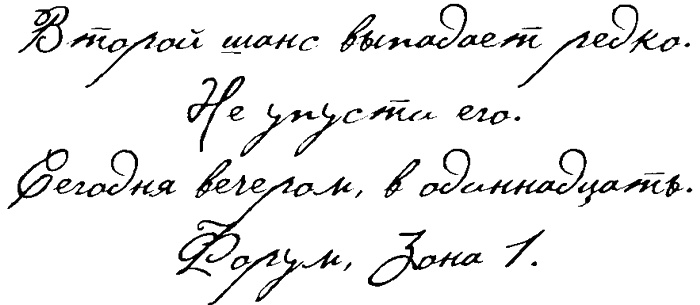 Второй шанс выпадает редко.
Не упусти его.
Сегодня вечером, в одиннадцать.
Форум, Зона 1.